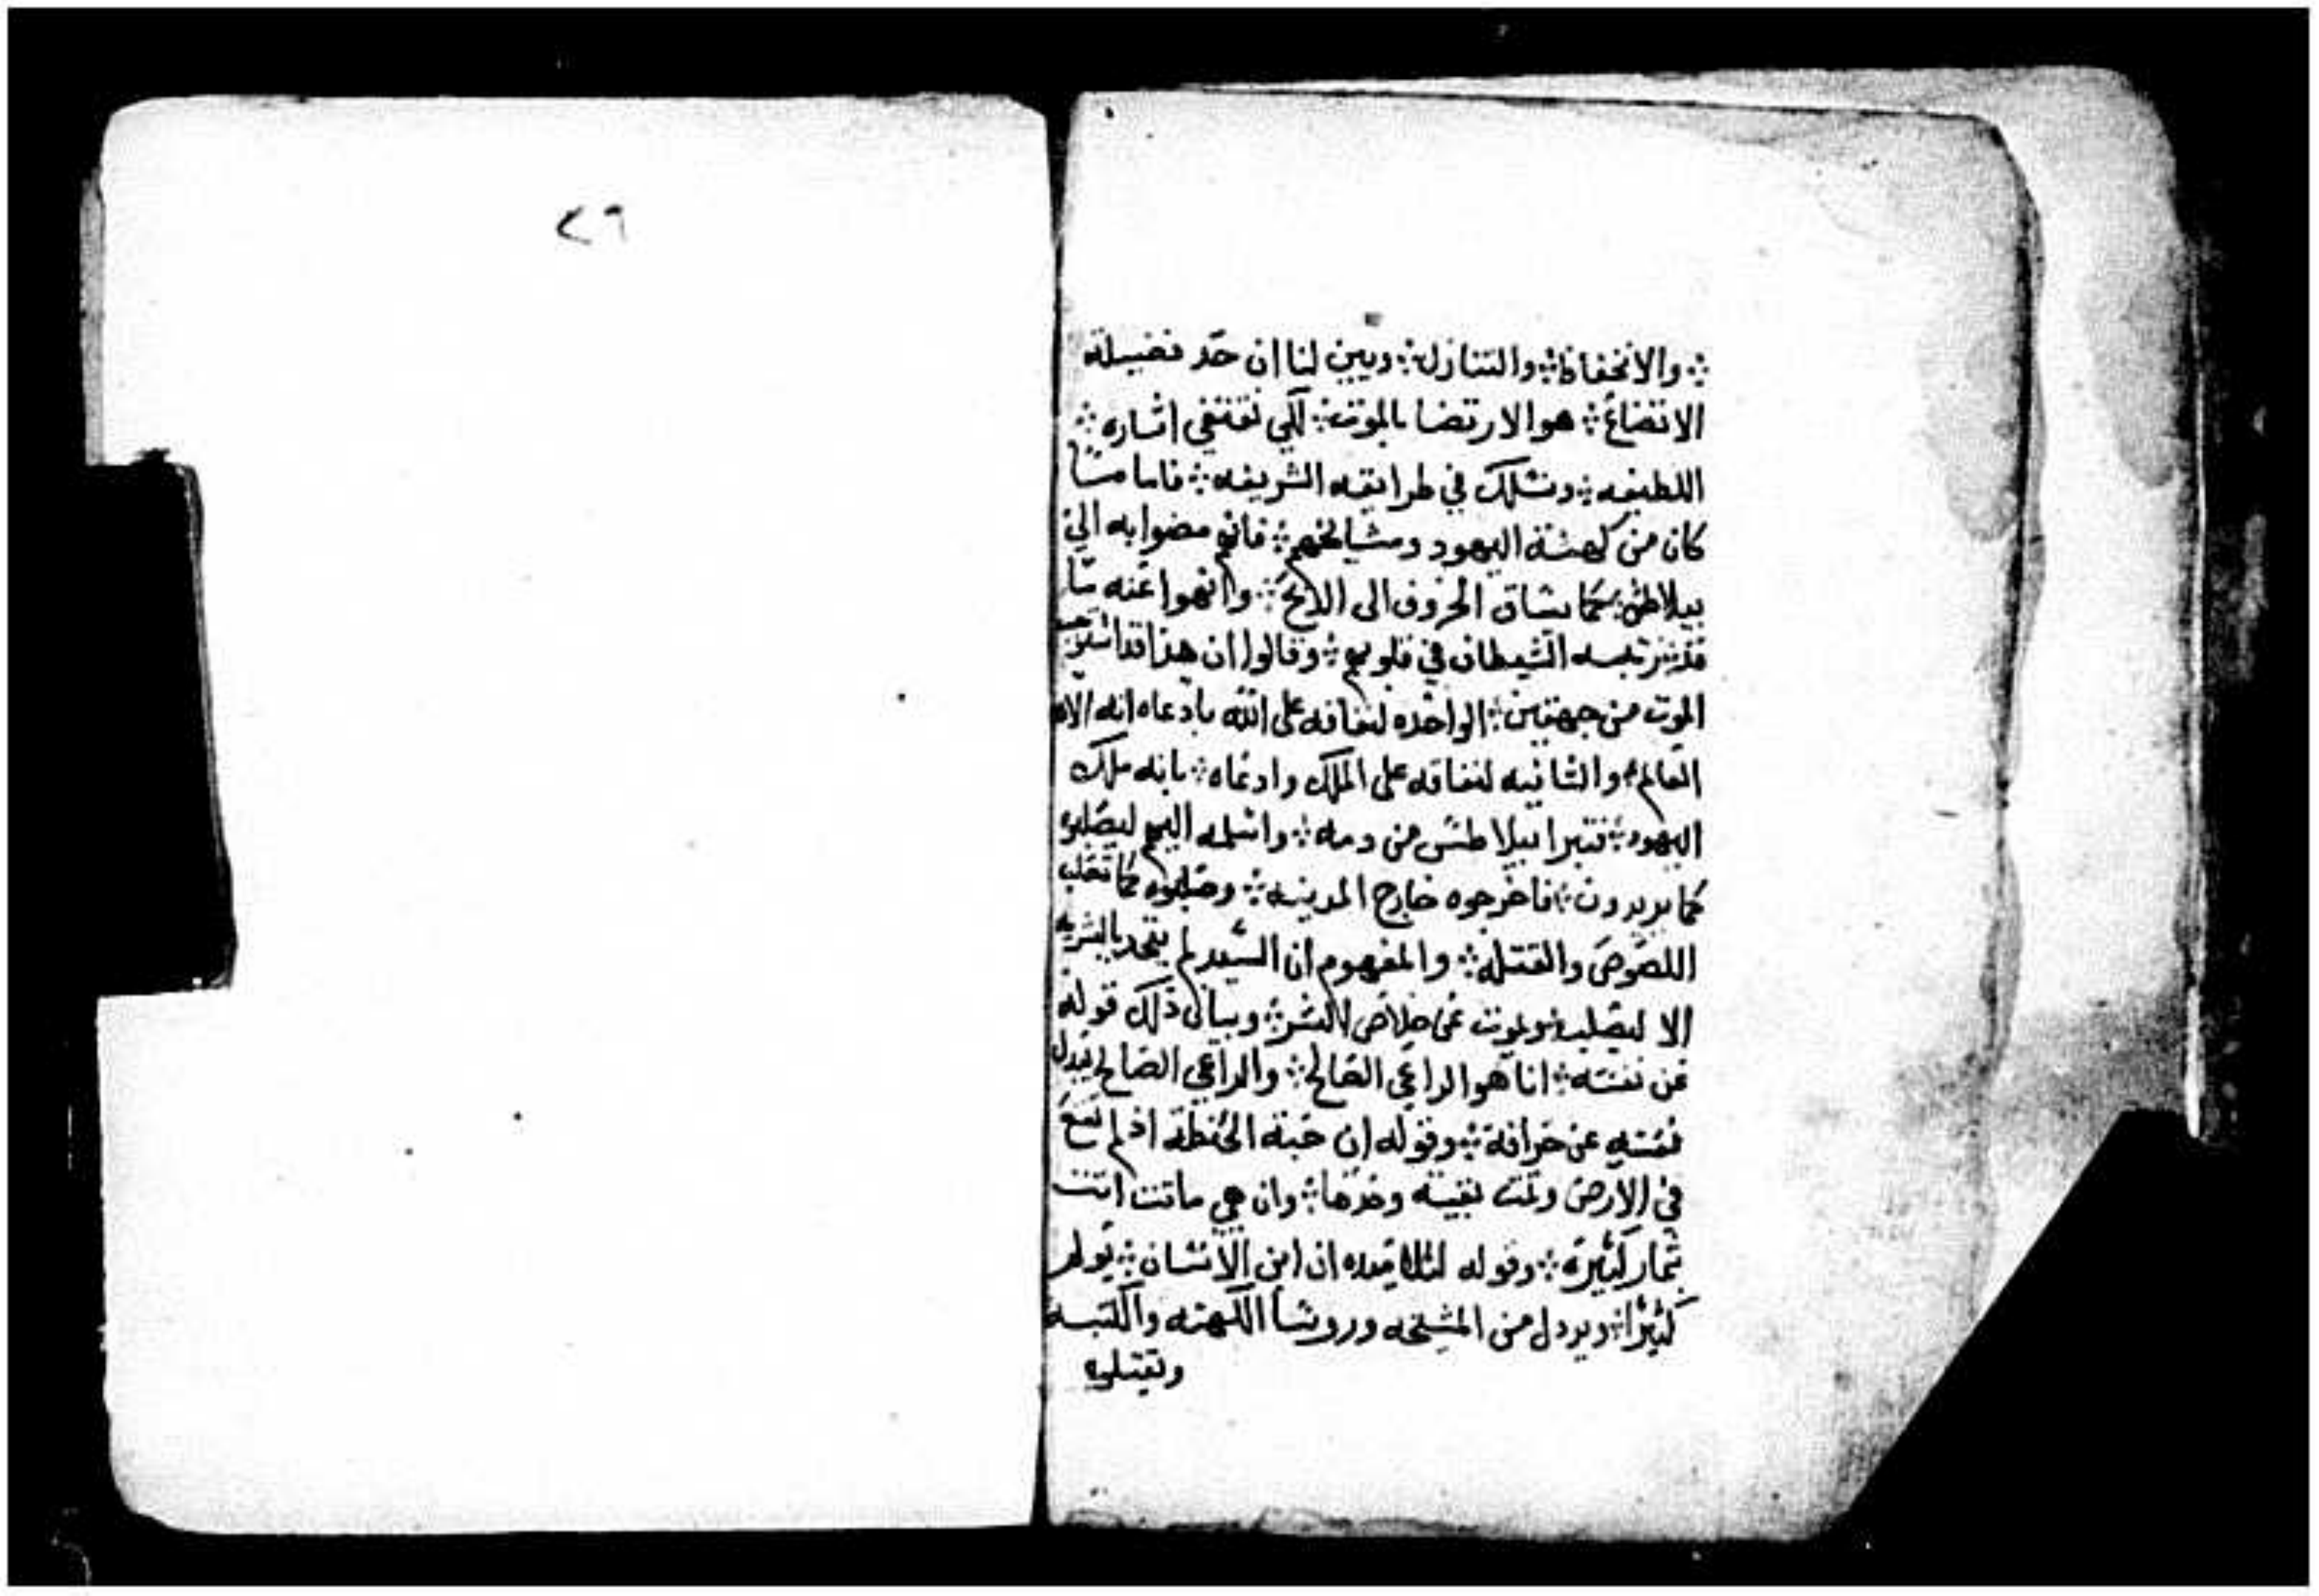 ؞ والانخفاظ ؞ والتنازل ؞ ويبين لنا ان حد فضيلة
الاتضاع ؞ هو الارتضا بالموت ؞ لكي نقتفي اثاره ؞
اللطيفه ؞ ونسلك في طرايقه الشريفه ؞ فاما ما
كان من كهنة اليهود ومشايخهم ؞ فانهم مضوا به الي
بيلاطس ؞ كما يساق الخروف الى الدبح ؞ وانهوا عنه ما
الشيطان في قلوبهم ؞ وقالوا ان هذا قد استوجب
الموت من جهتين ؞ الواحده لنفاقه على الله بادعاه انه الاه
العالم ؞ والثانيه لنفاقه على الملك وادعاه ؞ بانه ملك
اليهود ؞ فتبرا بيلاطس من دمه ؞ واسلمه اليهم ليصلبوه
كما يريدون ؞ فاخرجوه خارج المدينه ؞ وصلبوه كما تصلب
اللصوص والقتله ؞ والمفهوم ان السيد لم يتحد بالبشريه
الا ليصلب ؞ ويموت عن خلاص البشر ؞ وبيان ذلك قوله
عن نفسه ؞ انا هو الراعي الصالح ؞ والراعي الصالح يبدل
نفسه عن خرافة ؞ وقوله ان حبة الحنطة اذ لم تقع
في الارض وتمت بقيت وحدها ؞ وان هي ماتت اتت
بثمار كثيرة ؞ وقوله لتلاميده ان ابن الانسان ؞ يولم
كثيرا ؞ ويردل من المشيخه وروسا الكهنه والكتبه
ويقتلوه
٢٦